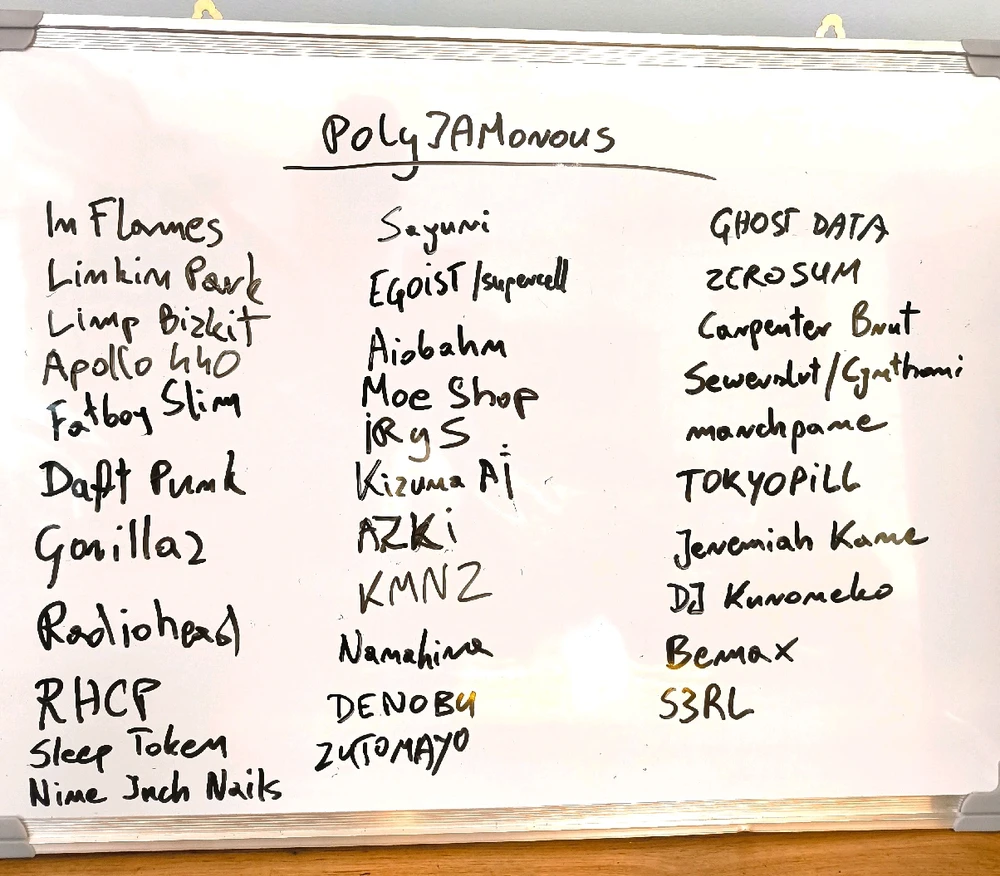 PolyJAMonous
In Flames
Linkin Park
Limp Bizkit
Apollo 440
Fatboy Slim
Daft Punk
Gorillaz
Radiohead
RHCP
Sleep Token
Nine Inch Nails
Sayuri
EGOiST/supercell
Aiobahn
Moe Shop
iRyS
Kizuna Ai
AZKi
KMNZ
Namahima
DENOBU
ZUTOMAYO
GHOST DATA
ZEROSUM
Carpenter Brut
Sewerslvt/Cynthoni
marchpane
TOKYOPiLL
Jeremiah Kane
DJ Kuroneko
Bemax
S3RL